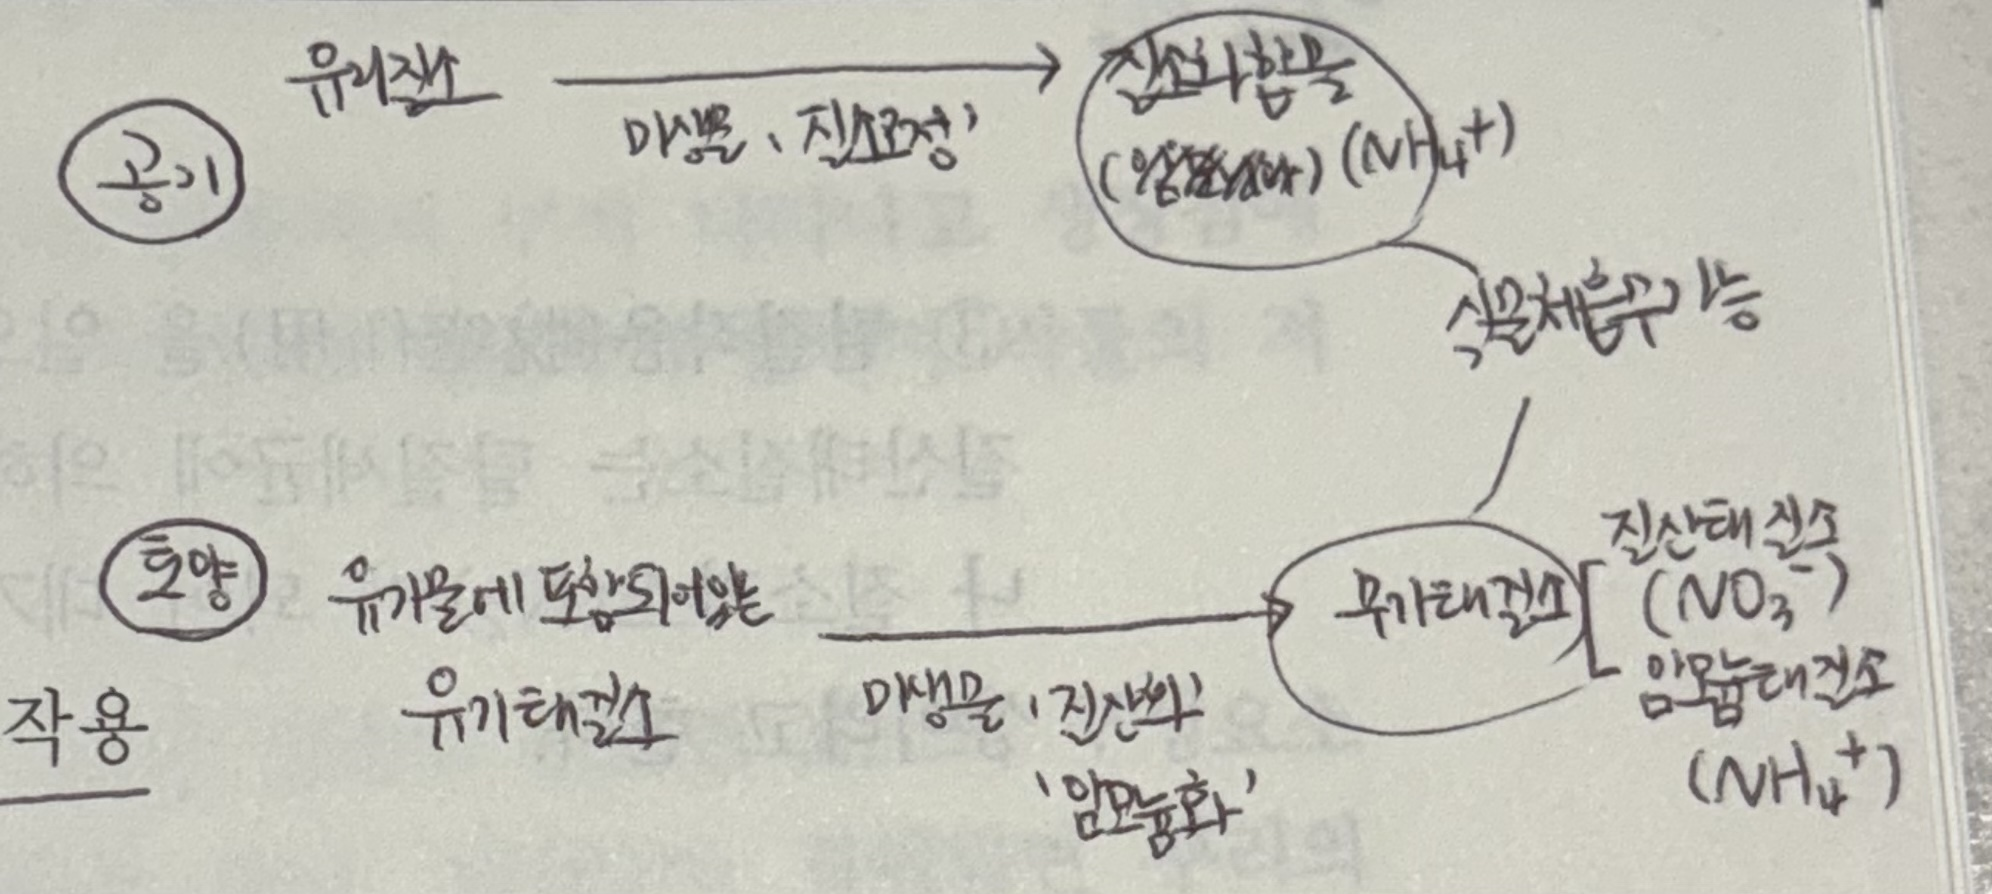 유리질소
질소화합물
공기
미생물 '질소고정'
(NH₄⁺)
식물체흡수가능
토양
유기물에 포함되어있는
유기태질소
무기태질소
질산태질소
(NO₃⁻)
암모늄태질소
(NH₄⁺)
미생물 '질산화'
'암모늄화'
작용